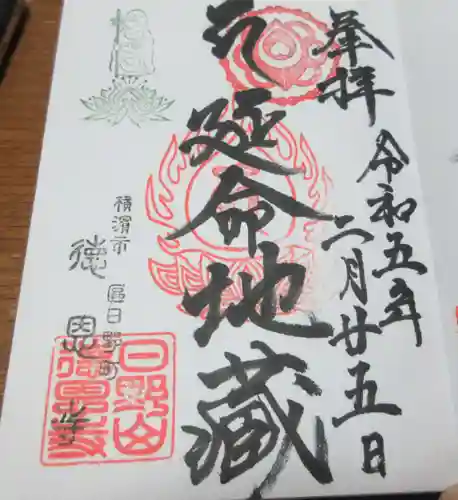 奉拝
令和五年
二月廿五日
延命地蔵
横濱市 區日野町
徳恩寺
日野山